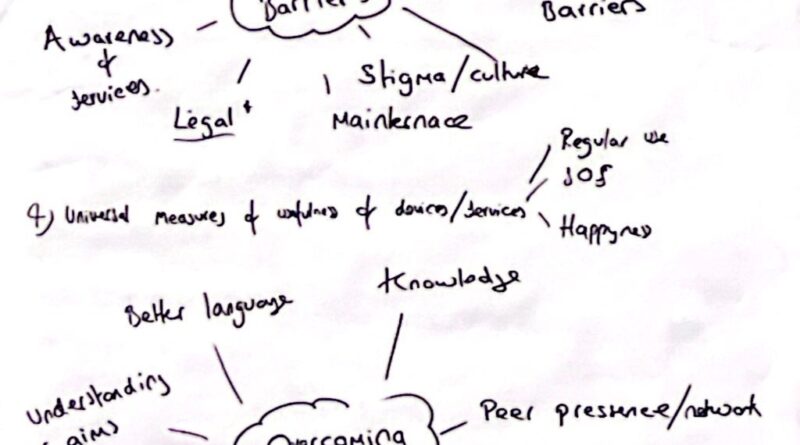 Barriers
Barriers
Awareness
&
services.
Stigma/culture
Legal
Mainternace
Regular use
4) Universal measures of usefulness of devices/services
Happyness
Knowledge
Better language
Understanding
aims
Peer presence/network
Overcoming